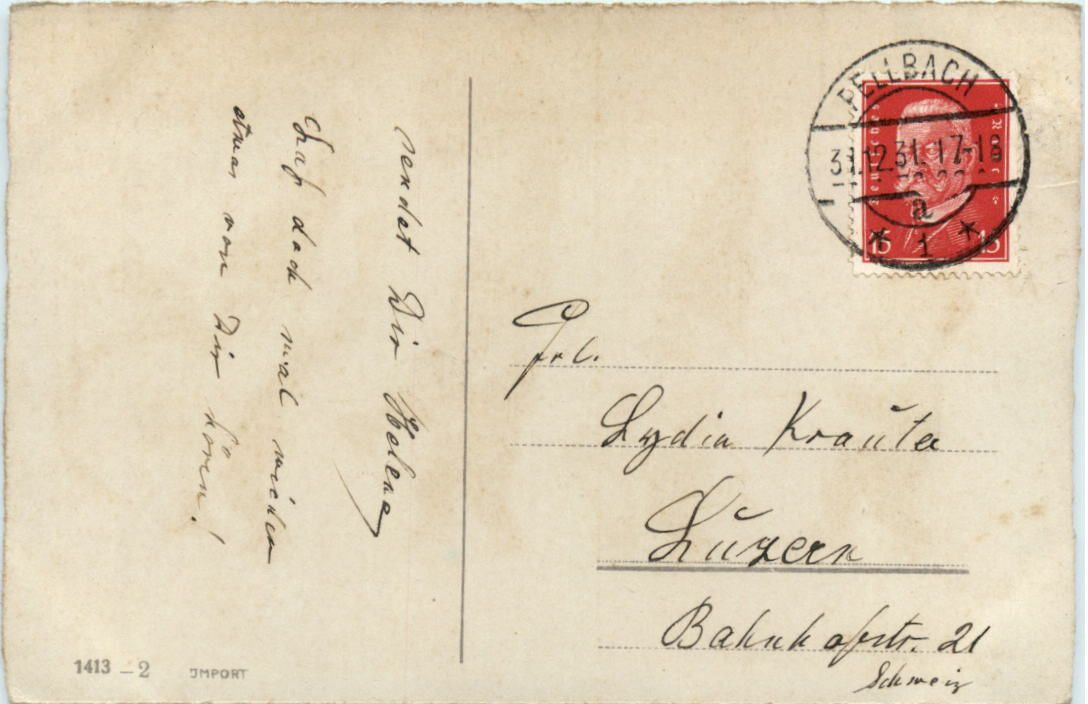 sendet Dir Helene
Laß doch mal wieder
etwas von Dir hören!
FELLBACH
31.12.31.17-18
a
* 1 *
Deutsches Reich
15 15
Frl.
Lydia Krauter
Luzern
Bahnhofstr. 21
Schweiz
1413 - 2 IMPORT